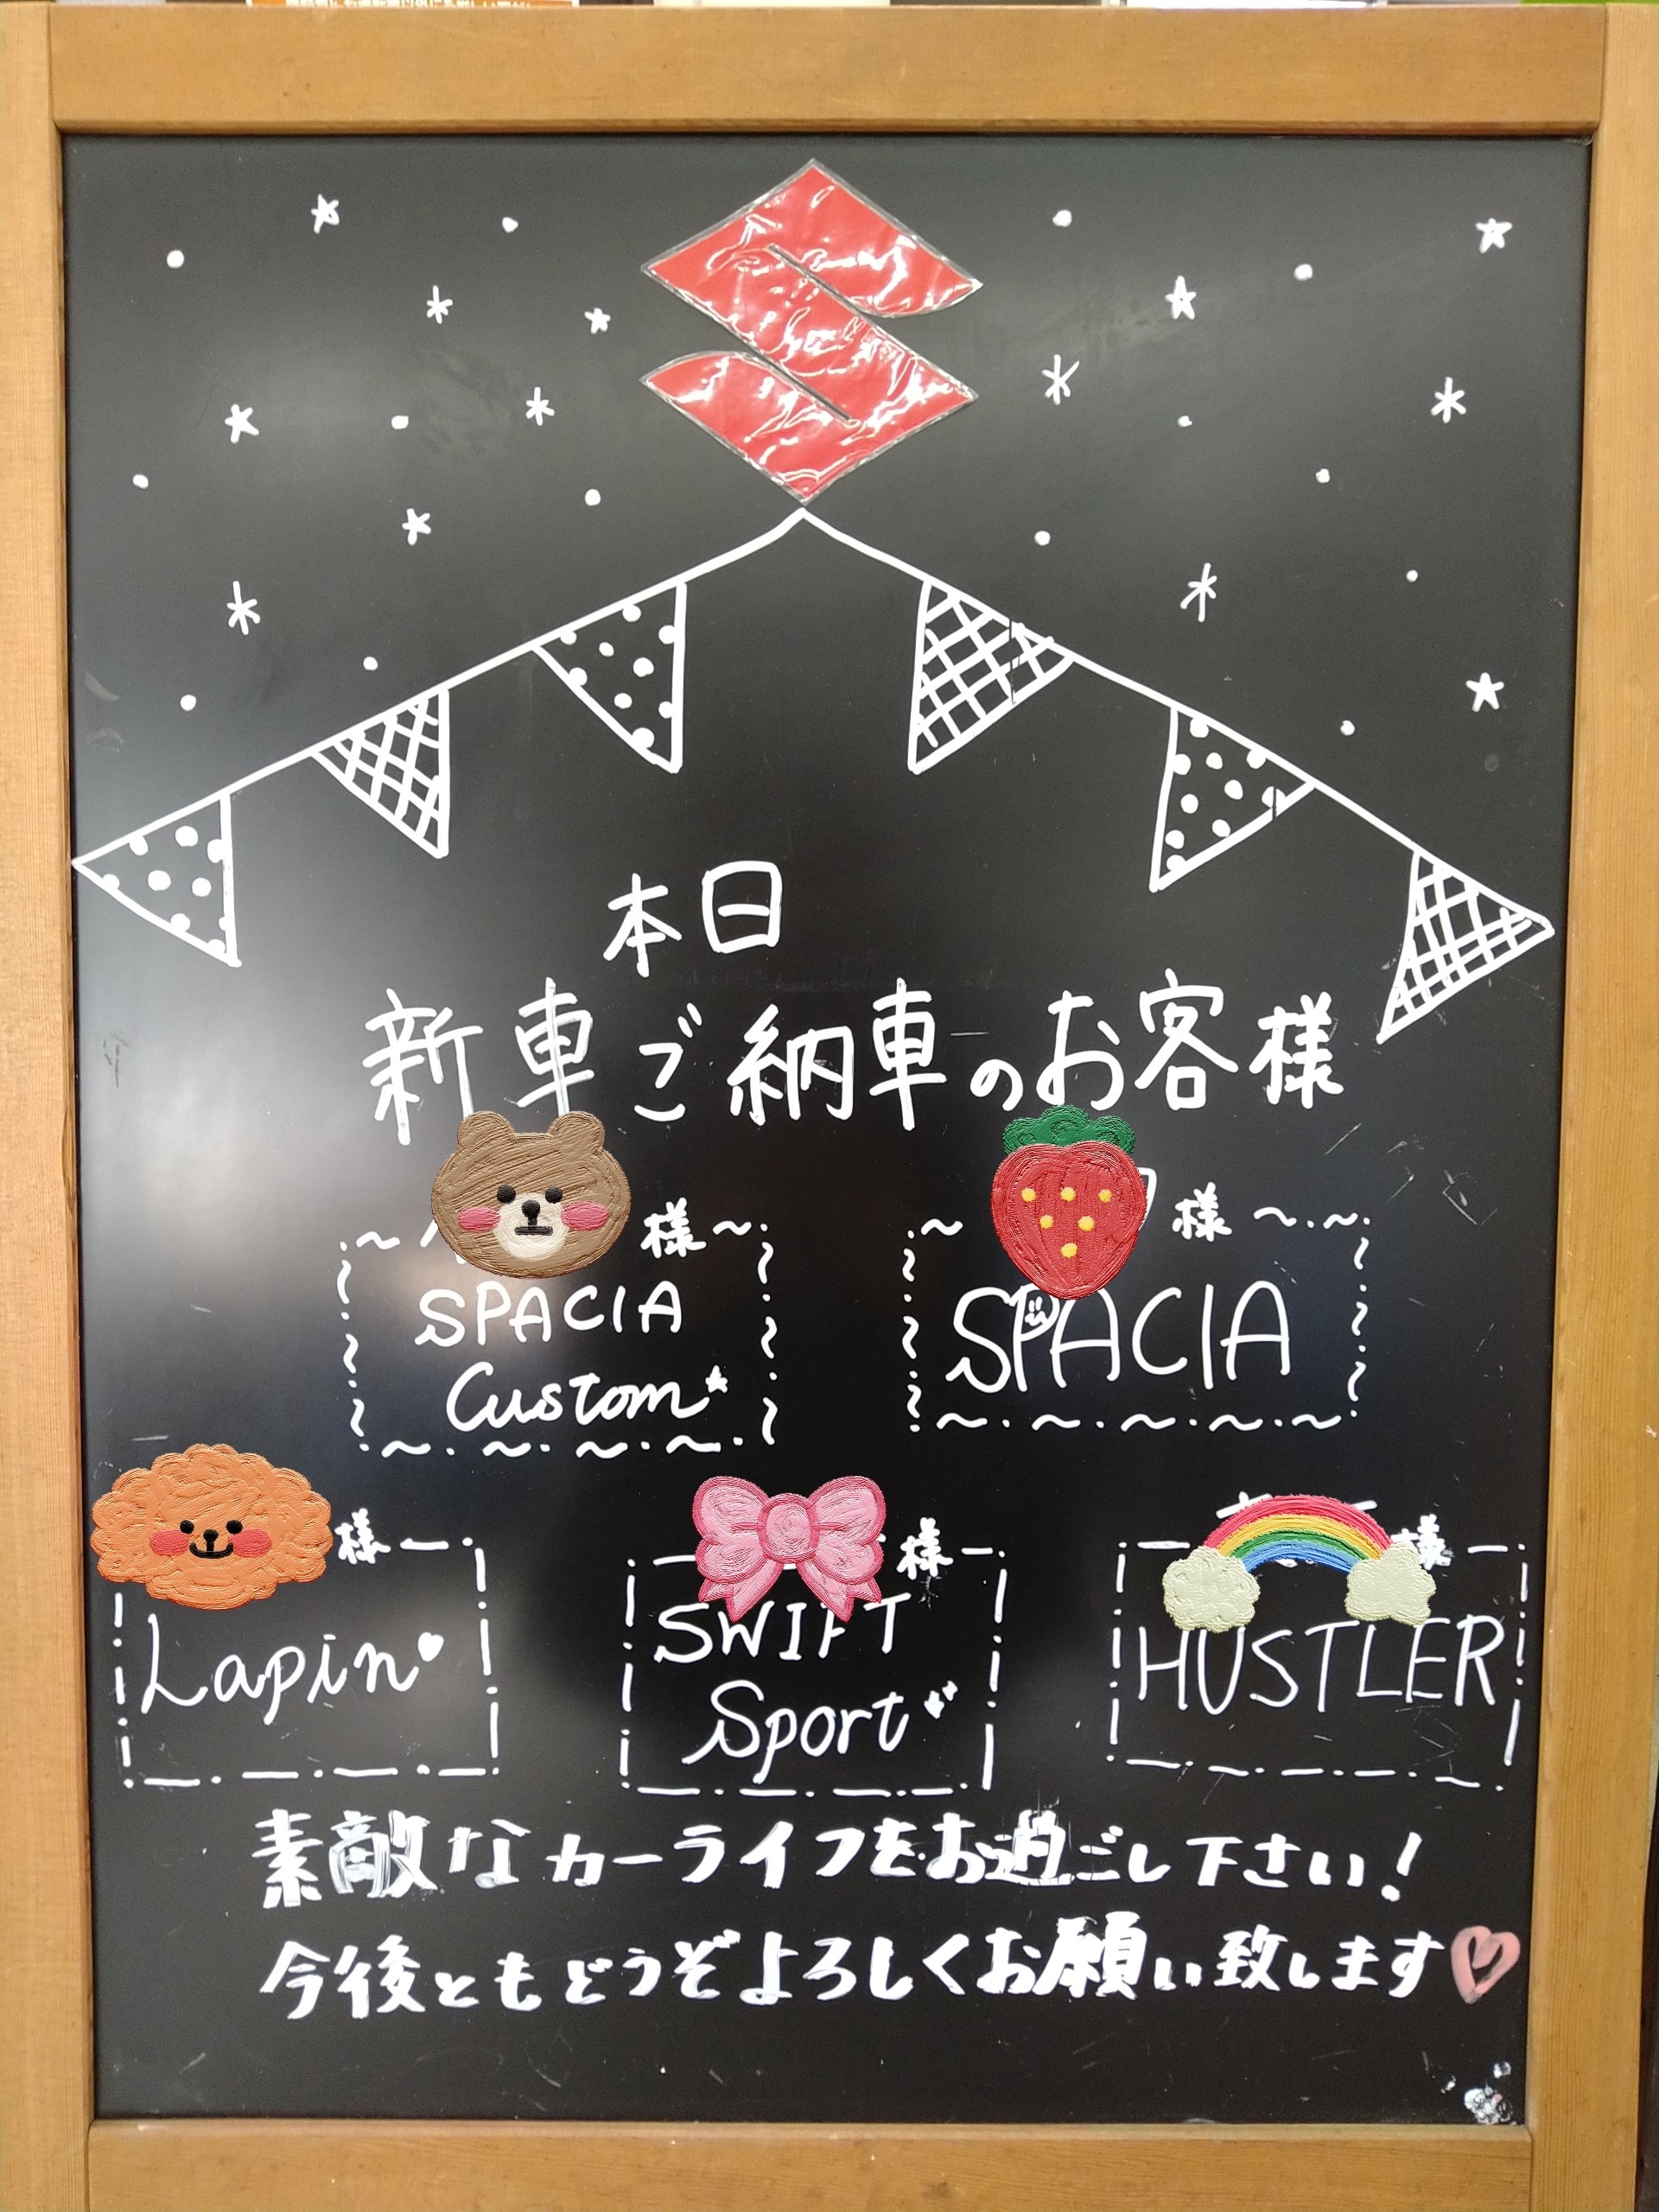 本日
新車ご納車のお客様
様
様
SPACIA
Custom
SPACIA
様
様
様
Lapin
SWIFT
Sport
HUSTLER
素敵なカーライフをお過ごし下さい!
今後ともどうぞよろしくお願い致します